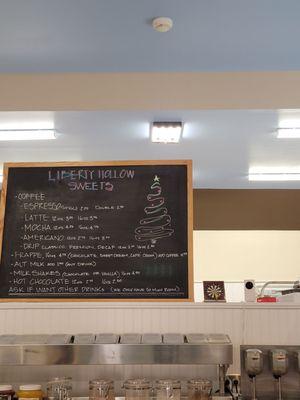 LIBERTY HOLLOW
SWEETS
-COFFEE
-ESPRESSO SINGLE DOUBLE
-LATTE 12OZ 16OZ
-MOCHA 12OZ 16OZ
-AMERICANO 12OZ 16OZ
-DRIP CLASSICO, PREMIUM, DECAF 12OZ 16OZ
-FRAPPE, 16OZ (CHOCOLATE, SWEET CREAM, LATTE CREAM) ADD COFFEE
-ALT MILK ADD (ANY DRINK)
-MILKSHAKES (CHOCOLATE OR VANILLA) 16OZ
-HOT CHOCOLATE 12OZ 16OZ
ASK IF WANT OTHER DRINKS (WE ONLY HAVE SO MUCH ROOM)